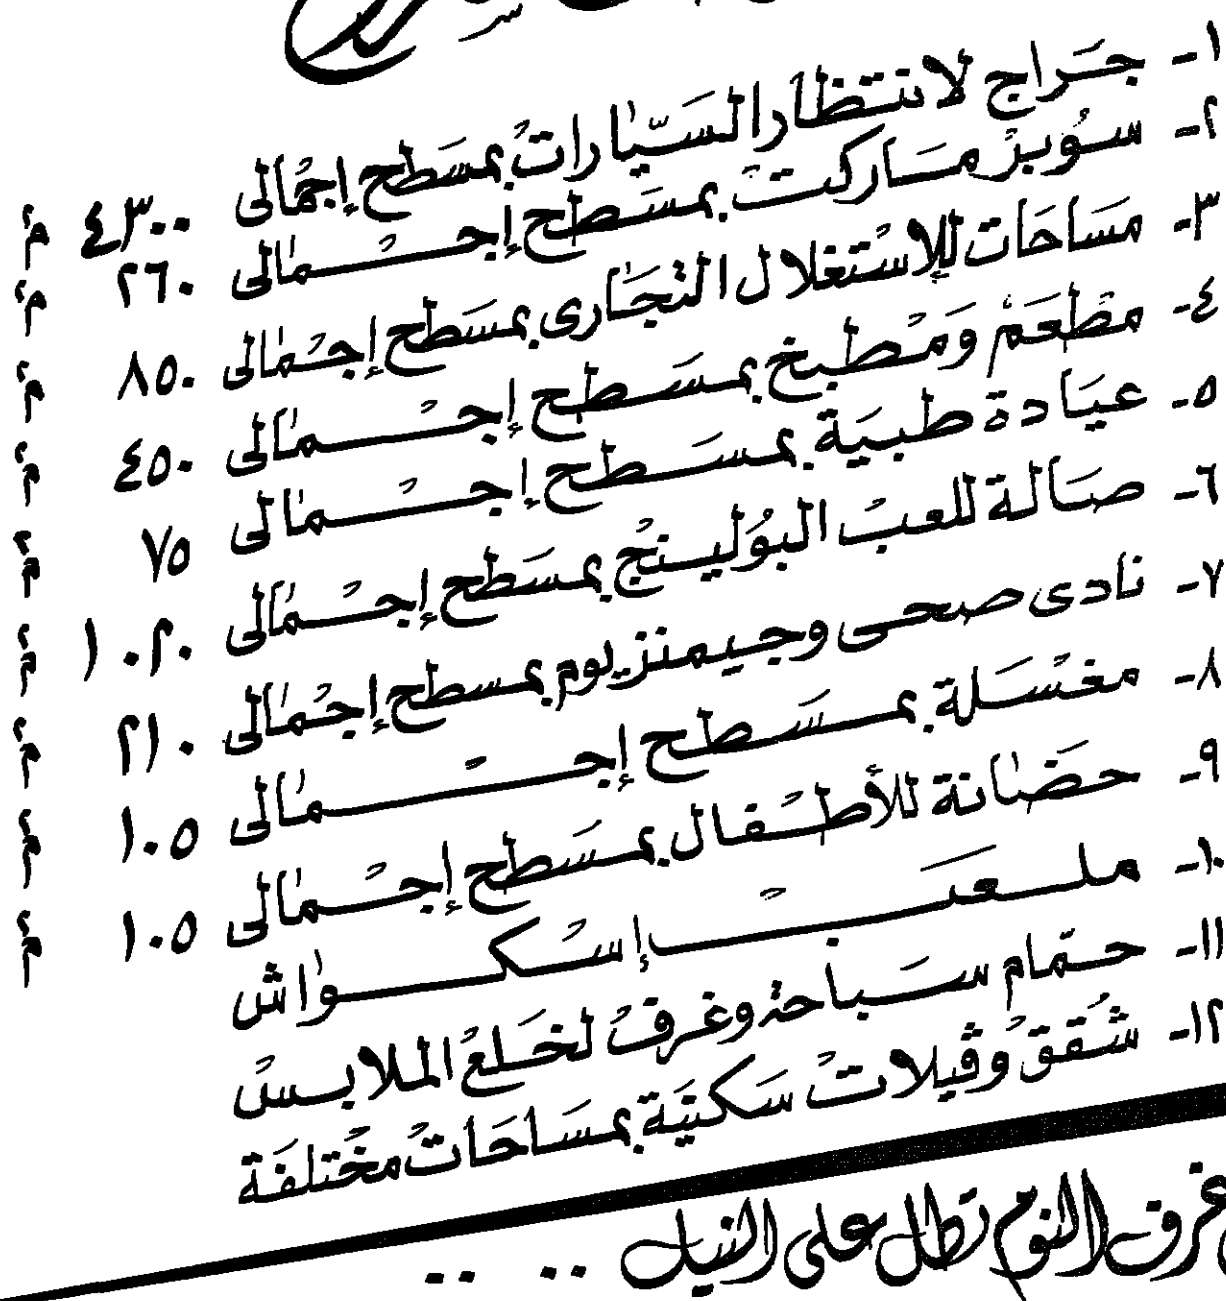 ١- جراج لانتظار السيارات بمسطح إجمالى ٤٣٠٠ م٢
٢- سوبر ماركت بمسطح إجمالى ٢٦٠ م٢
٣- مساحات للإستغلال التجارى بمسطح إجمالى ٨٥٠ م٢
٤- مطعم ومطبخ بمسطح إجمالى ٤٥٠ م٢
٥- عيادة طبية بمسطح إجمالى ٧٥ م٢
٦- صالة للعب البولينج بمسطح إجمالى ١٠٢٠ م٢
٧- نادى صحى وجيمنزيوم بمسطح إجمالى ٢١٠ م٢
٨- مغسلة بمسطح إجمالى ١٠٥ م٢
٩- حضانة للأطفال بمسطح إجمالى ١٠٥ م٢
١٠- ملعب إسكواش
١١- حمام سباحة وغرف لخلع الملابس
١٢- شقق وڤيلات سكنية بمساحات مختلفة
غرف النوم تطل على النيل .. ..